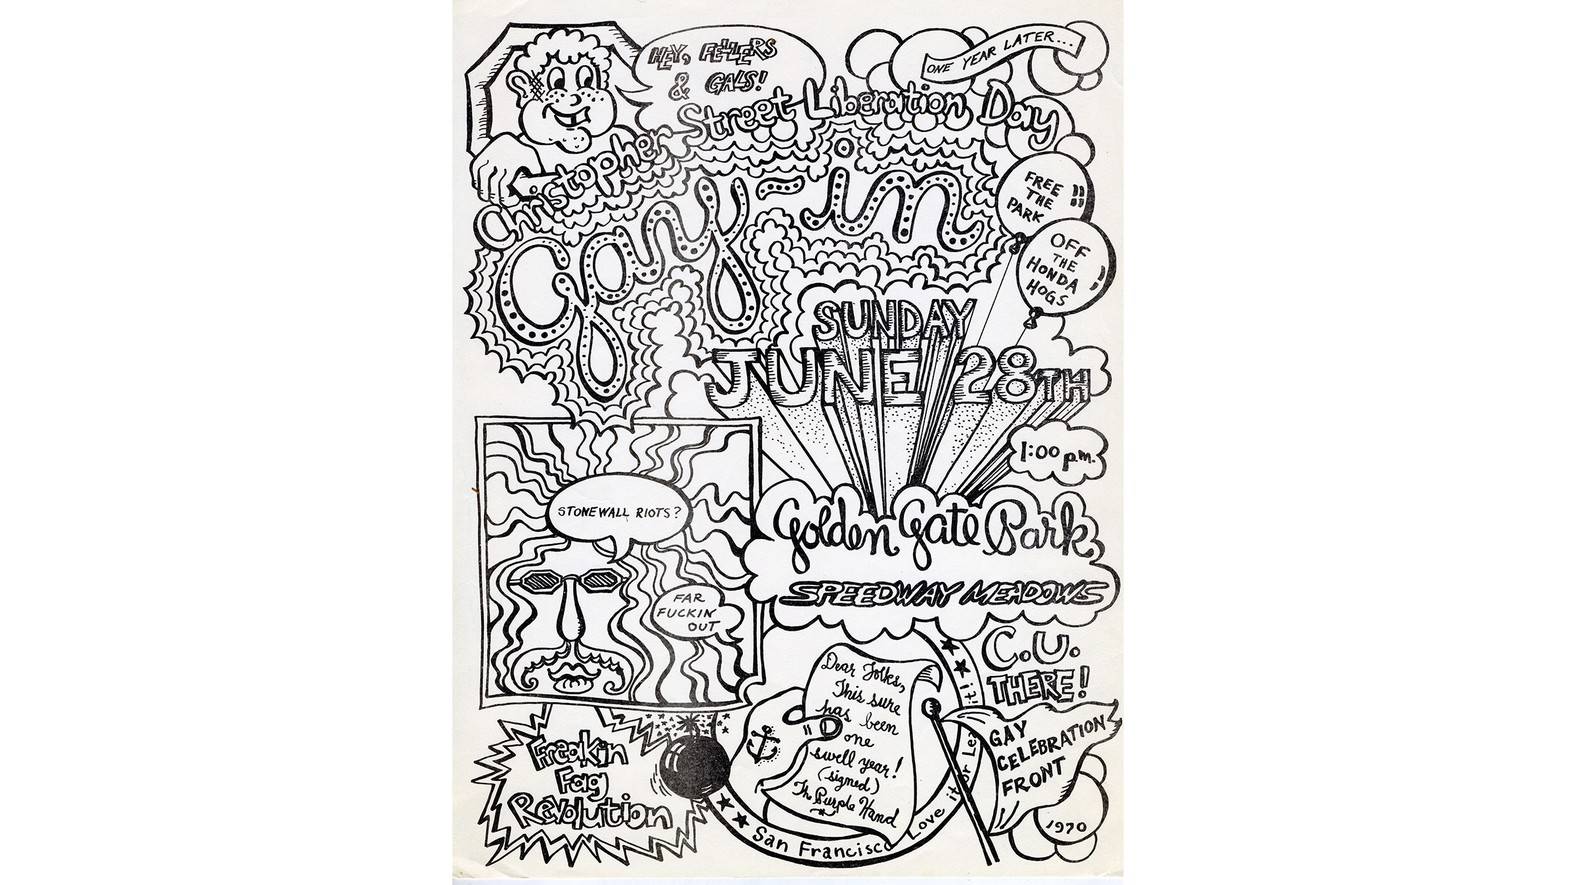 HEY, FELLERS
& GALS!
ONE YEAR LATER...
Christopher Street Liberation Day
Gay-in
FREE
THE
PARK
OFF
THE
HONDA
HOGS
SUNDAY
JUNE 28TH
1:00 p.m.
Golden Gate Park
SPEEDWAY MEADOWS
STONEWALL RIOTS?
FAR
FUCKIN'
OUT
C.U.
THERE!
Dear Folks,
This sure
has been
one
swell year!
(signed)
Th Purple Hand
San Francisco Love it or Le it!
GAY
CELEBRATION
FRONT
1970
Freakin
Fag
Revolution